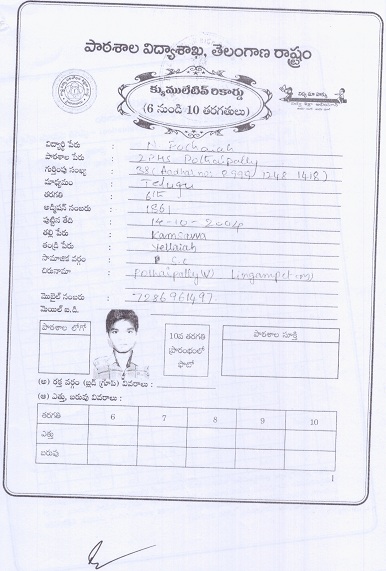 పాఠశాల విద్యాశాఖ, తెలంగాణ రాష్ట్రం
క్యుములేటివ్ రికార్డు
(6 నుండి 10 తరగతులు)
విద్యార్థి పేరు : N Pochaiah
పాఠశాల పేరు : ZPHS Polthaipally
గుర్తింపు సంఖ్య : 38 (Aadhar no: 0999 1248 1418)
మాధ్యమం : Telugu
తరగతి : 6th
అడ్మిషన్ నంబరు : 1861
పుట్టిన తేది : 14-10-2004
తల్లి పేరు :
తండ్రి పేరు : Yellaiah
సామాజిక వర్గం : S.C
చిరునామా : Polthaipally (V) Lingampet (m)
మొబైల్ నంబరు : 7286961497
మెయిల్ ఐ.డి.
పాఠశాల లోగో
10వ తరగతి ప్రారంభంలో ఫొటో
పాఠశాల సూక్తి
(అ) రక్త వర్గం (బ్లడ్ గ్రూప్) వివరాలు :
(ఆ) ఎత్తు, బరువు వివరాలు :
తరగతి 6 7 8 9 10
ఎత్తు
బరువు
1